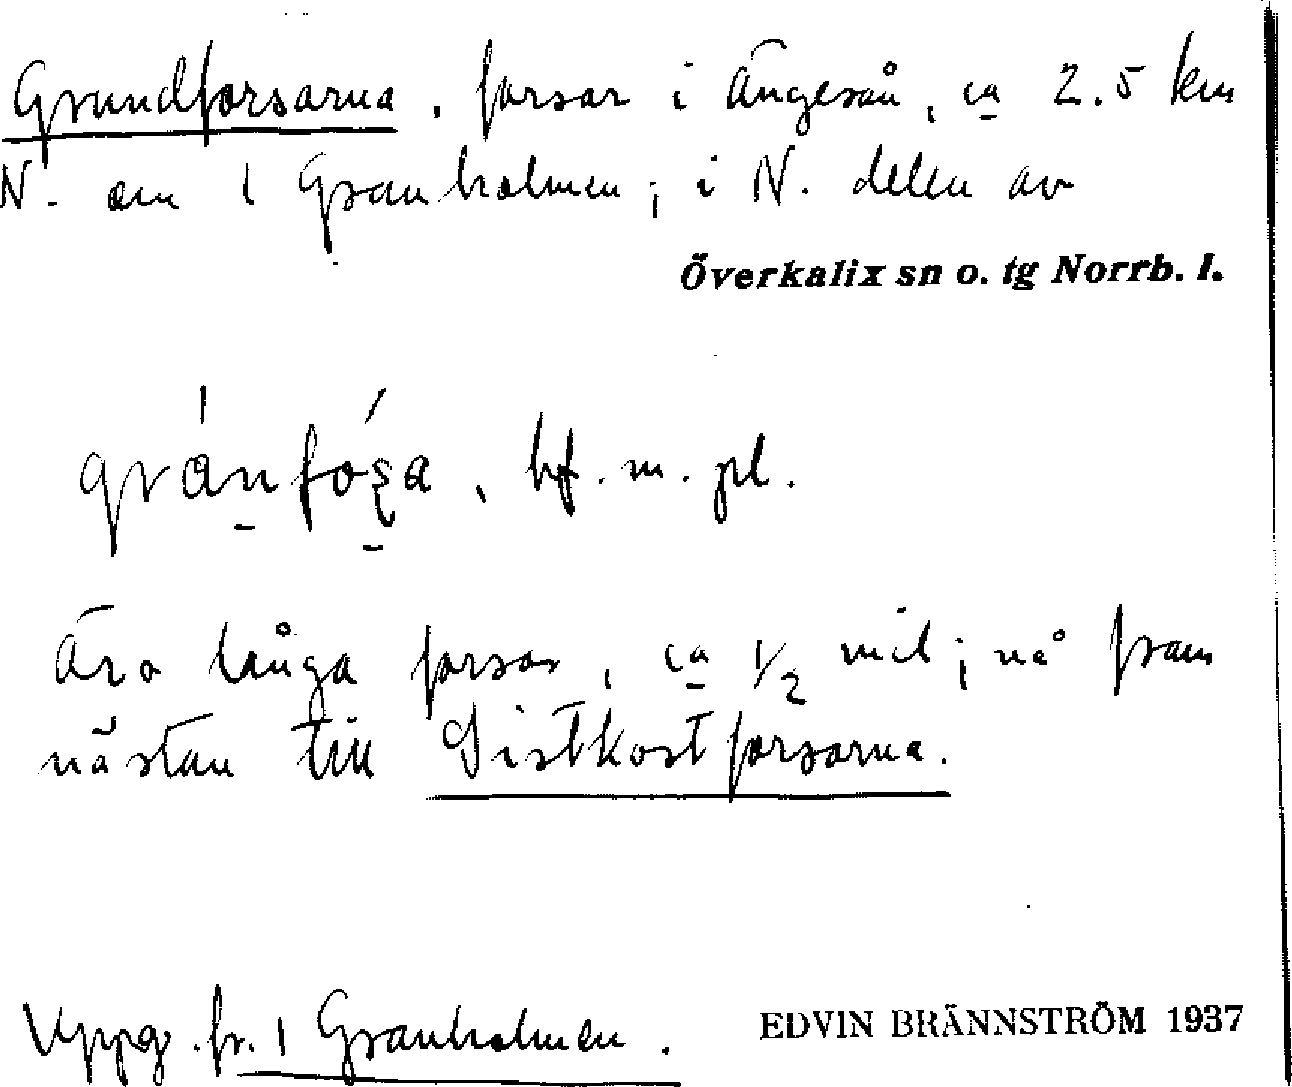 Grundforsarna, forsar i Ängesån, ca 2.5 km
N. om 1 Granholmen; i N. delen av
Överkalix sn o. tg Norrb. l.
bf. m. pl.
Äro långa forsar, ca 1/2 mil; nå fram
nästan till Gistkostforsarna.
Uppg. fr. 1 Granholmen.
EDVIN BRÄNNSTRÖM 1937